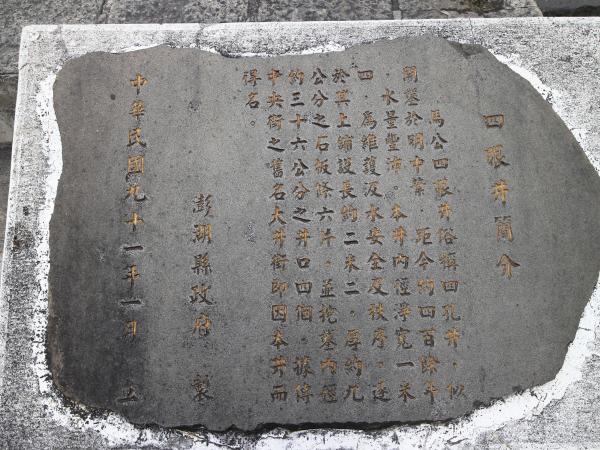 四眼井簡介
馬公四眼井俗稱四孔井,似
開鑿於明中葉,距今約四百餘年
,水量豐沛。本井內徑淨寬一米
四,為維護汲水安全及秩序,遂
於其上鋪設長約二米二,厚約九
公分之石板條六片,並挖鑿內徑
約三十六公分之井口四個。據傳
中央街之舊名大井街即因本井而
得名。
澎湖縣政府 製
中華民國九十一年一月 立